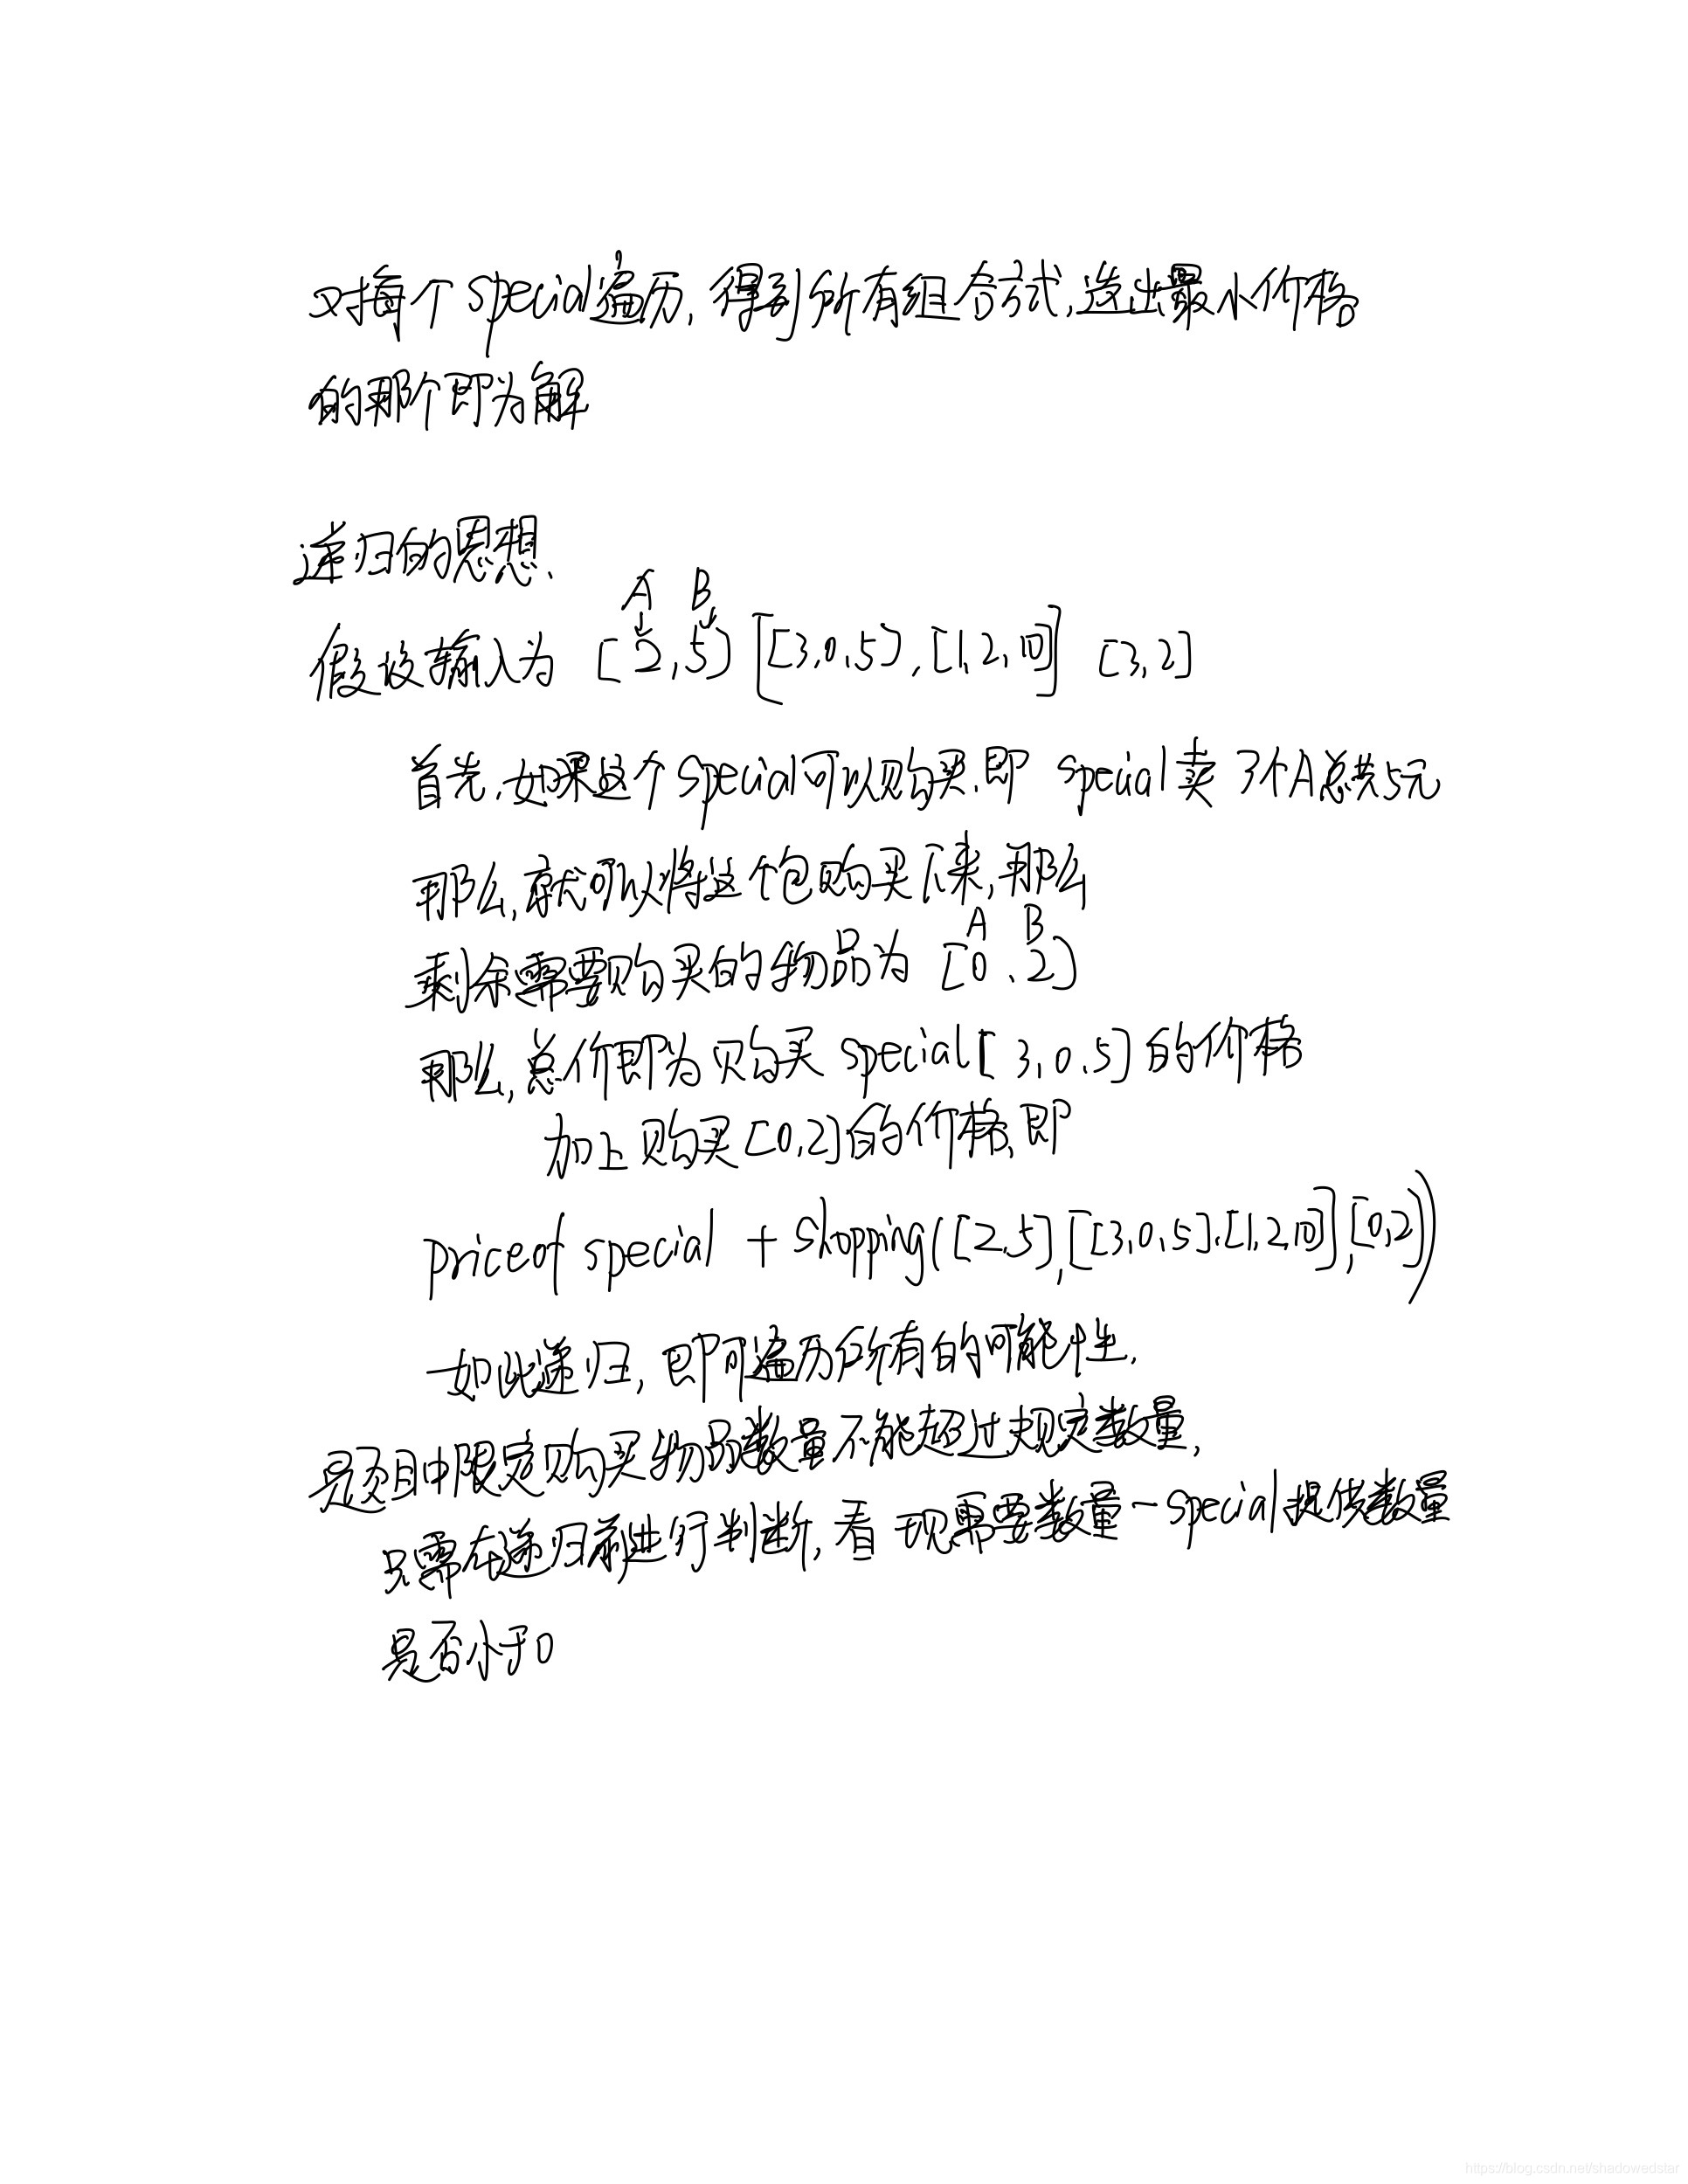 对每个special遍历,得到所有组合方式,选出最小价格
的那个即为解
递归的思想.
A B
假设输入为 [2,5] [[3,0,5],[1,2,10]] [3,2]
首先,如果这个special可以购买,即 special卖3个A总共5元
那么,就可以将这个包购买下来,那么
A B
剩余需要购买的物品为 [0,2]
那么,总价即为购买special[3,0,5]的价格
加上购买[0,2]的价格,即
price of special + shopping([2,5],[[3,0,5],[1,2,10]],[0,2])
如此递归,即可遍历所有的可能性.
题目中限定购买物品数量不能超过规定数量,
只需在递归前进行判断,看现需要数量-special提供数量
是否小于0
https://blog.csdn.net/shadowedstar